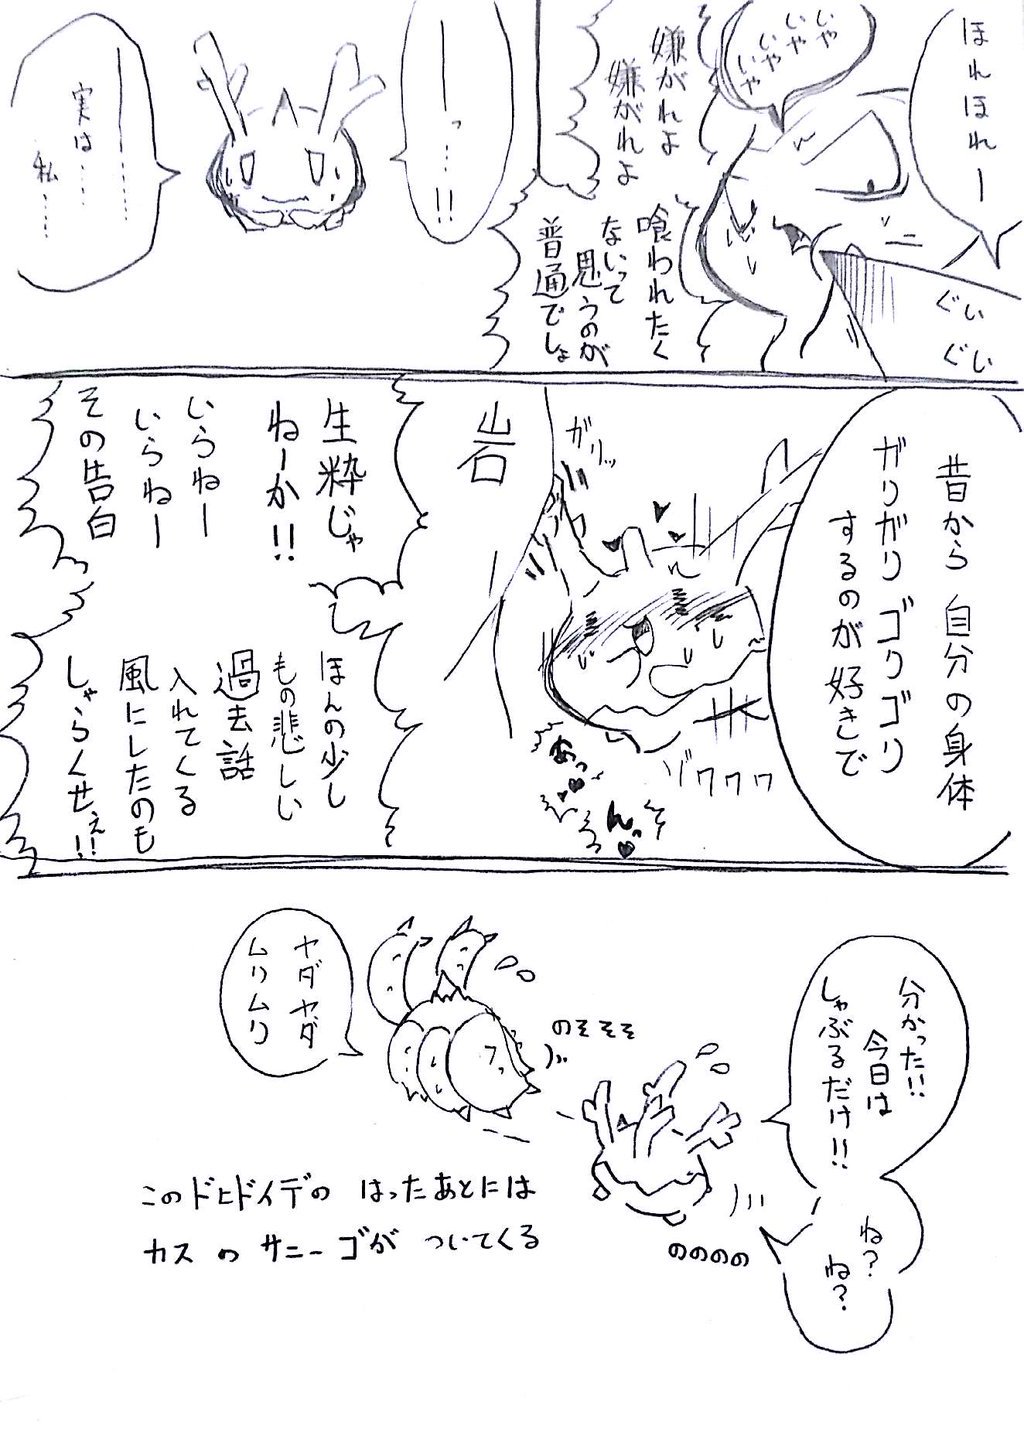 ほれほれー
いや
いや
いや
いや
嫌がれよ
嫌がれよ
喰われたく
ないって
思うのが
普通でしょ
ぐい
ぐい
――っ…!!
―――………
実は……
私……
昔から 自分の身体
ガリガリ ゴリゴリ
するのが 好きで
ガリッ
岩
ゾワワワ
あっ♥
んっ♥
生粋じゃ
ねーか!!
いらねー
いらねー
その告白
ほんの少し
もの悲しい
過去話
入れてくる
風にしたのも
しゃらくせぇ!!
分かった!!
今日は
しゃぶるだけ!!
ね?
ね?
ヤダヤダ
ムリムリ
のそそそ
のののの
このドヒドイデの はったあとには
カスのサニーゴが ついてくる